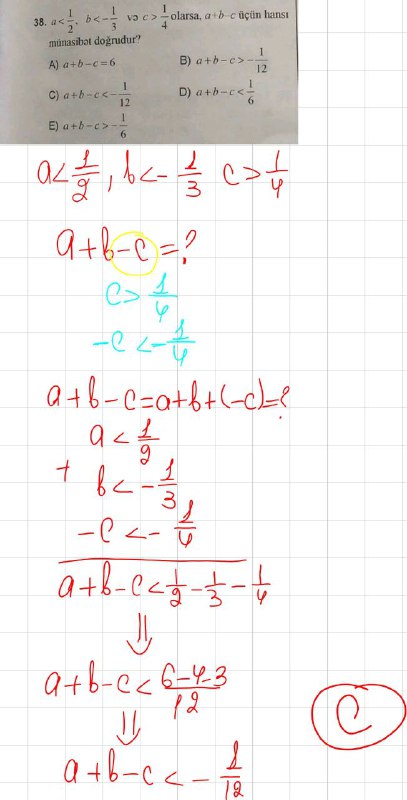 38. a < 1/2, b < -1/3 və c > 1/4 olarsa, a+b-c üçün hansı
münasibət doğrudur?
A) a+b-c=6 B) a+b-c > -1/12
C) a+b-c < -1/12 D) a+b-c < 1/6
E) a+b-c > -1/6
a < 1/2, b < -1/3 c > 1/4
a+b-c=?
c > 1/4
-c < -1/4
a+b-c=a+b+(-c)=?
a < 1/2
+ b < -1/3
-c < -1/4
a+b-c < 1/2 - 1/3 - 1/4
⇓
a+b-c < 6-4-3/12
⇓
a+b-c < -1/12
C